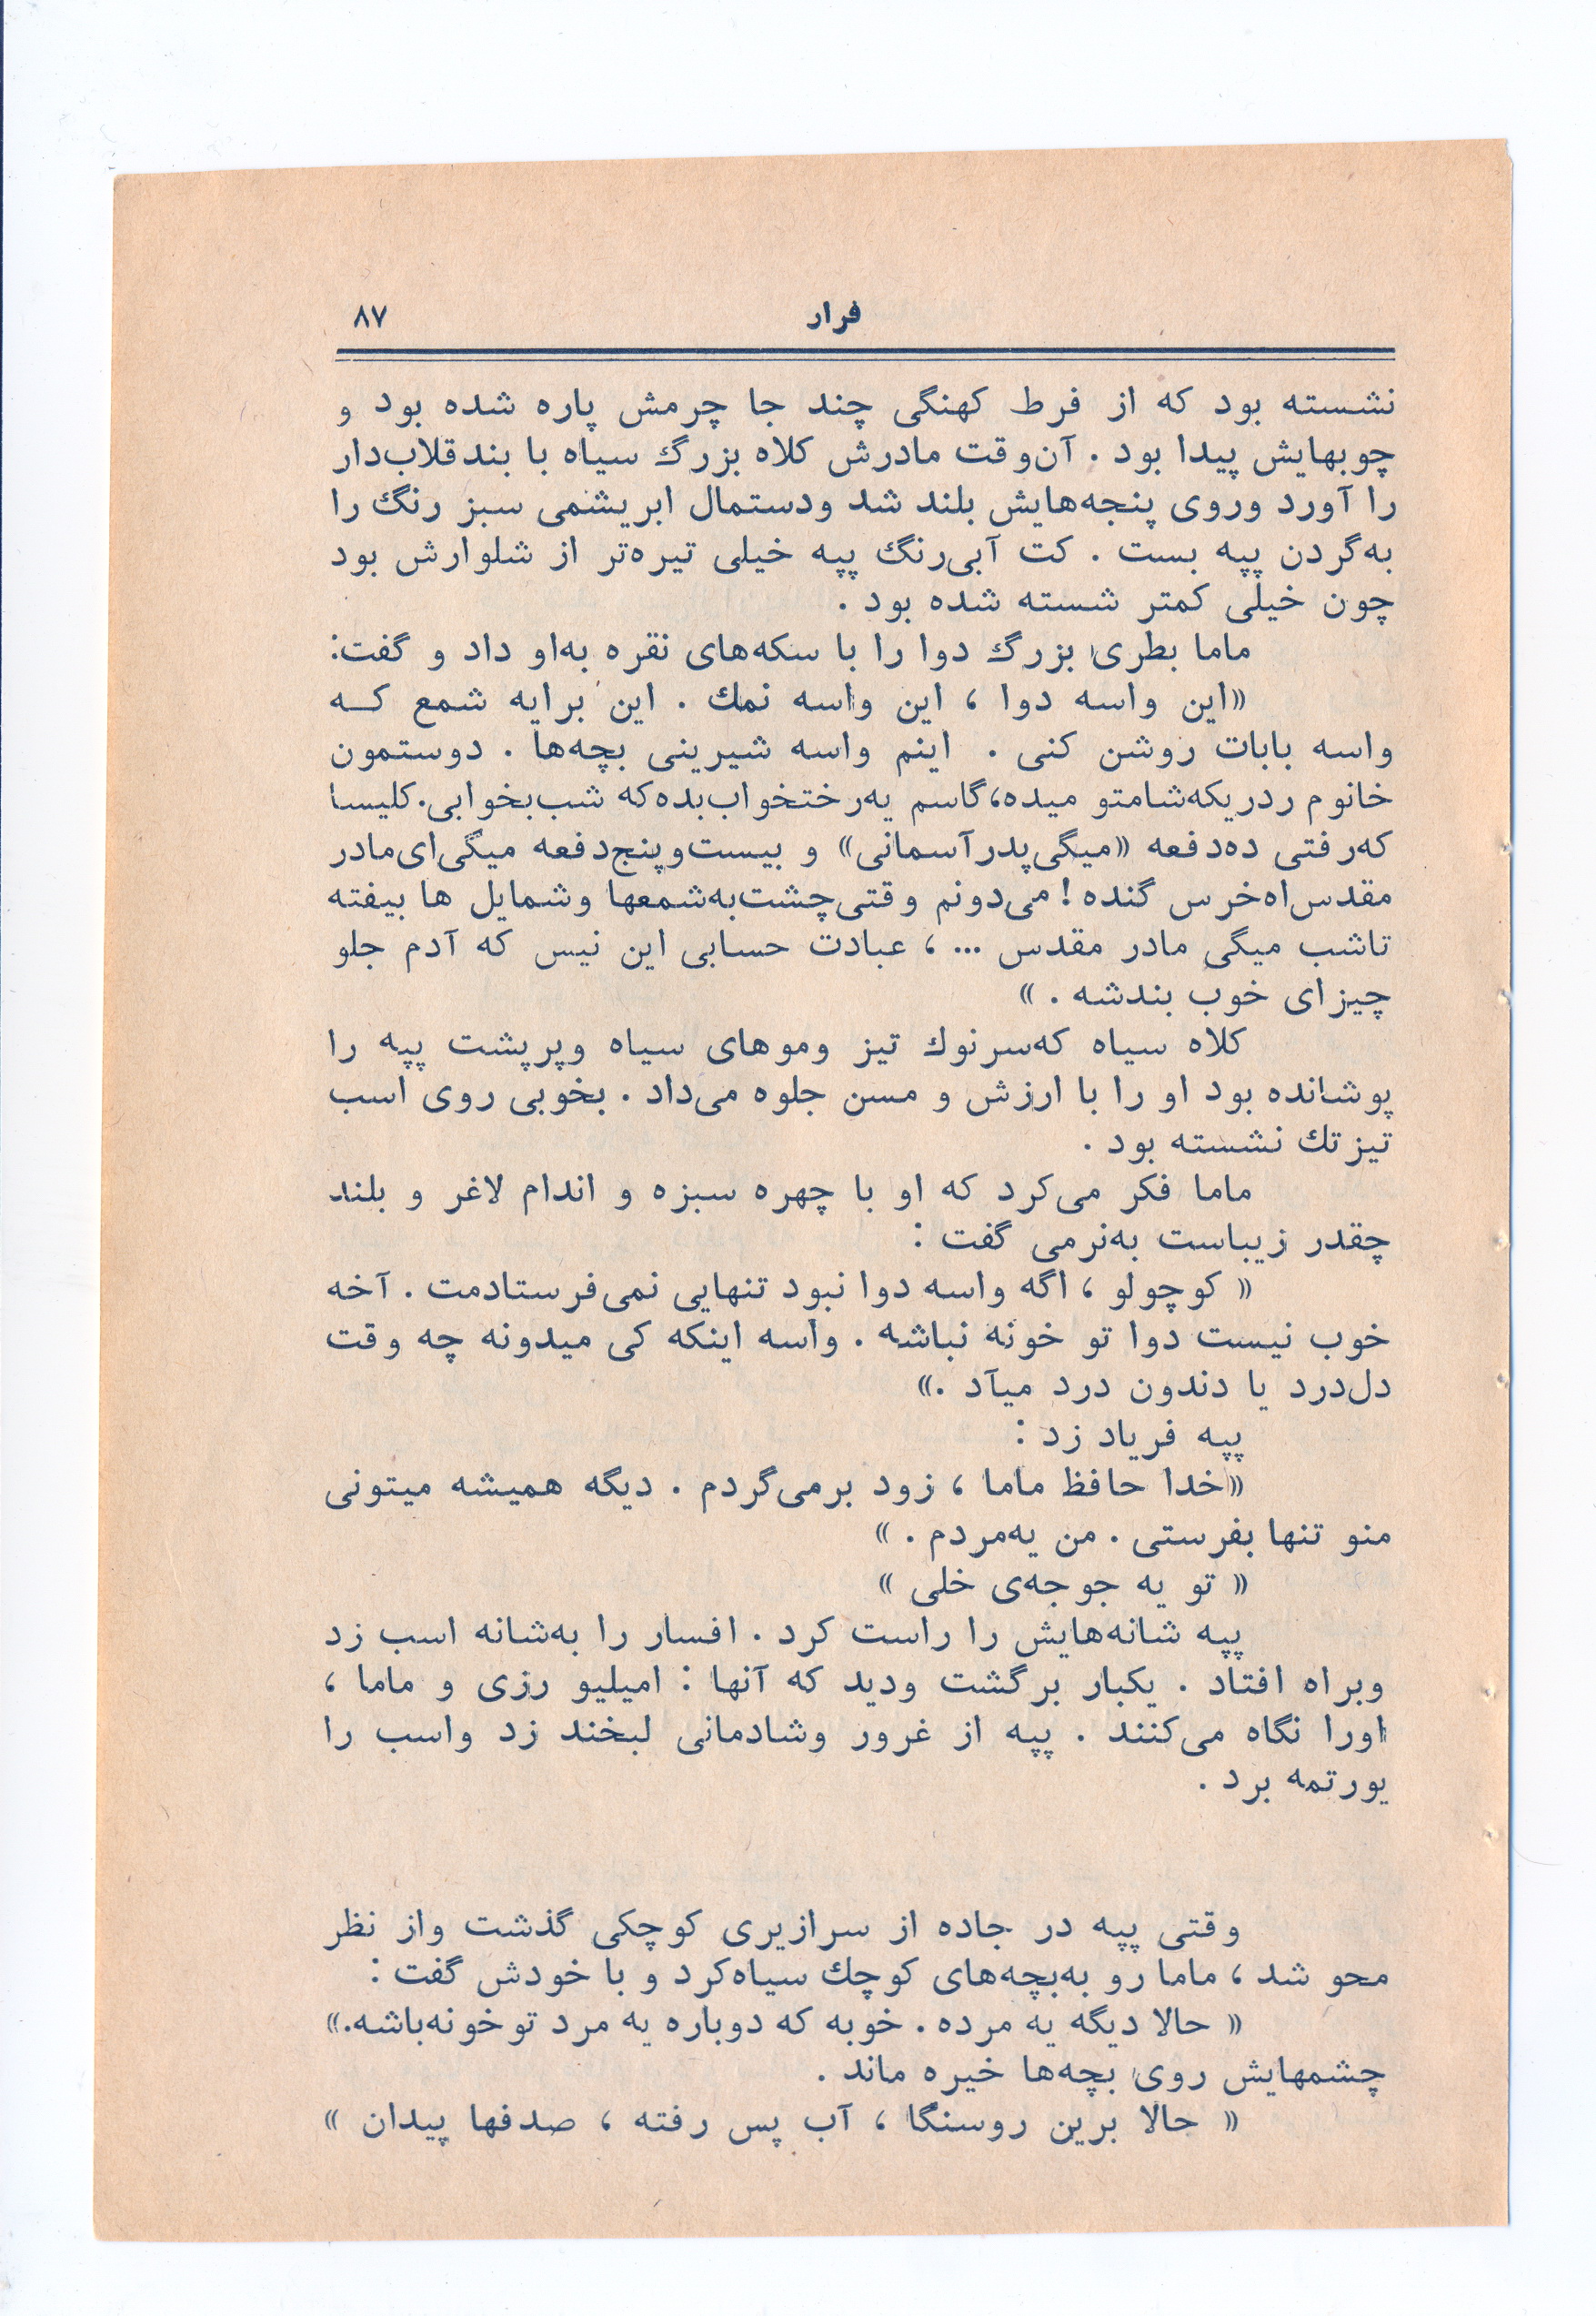 فرار ۸۷
نشسته بود که از فرط کهنگی چند جا چرمش پاره شده بود و
چوبهایش پیدا بود . آن‌وقت مادرش کلاه بزرگ سیاه با بندقلاب‌دار
را آورد وروی پنجه‌هایش بلند شد ودستمال ابریشمی سبز رنگ را
به‌گردن پپه بست . کت آبی‌رنگ پپه خیلی تیره‌تر از شلوارش بود
چون خیلی کمتر شسته شده بود .
ماما بطری بزرگ دوا را با سکه‌های نقره به‌او داد و گفت:
«این واسه دوا ، این واسه نمك . این برایه شمع کـه
واسه بابات روشن کنی . اینم واسه شیرینی بچه‌ها . دوستمون
خانوم ردریکه‌شامتو میده،گاسم یه‌رختخواب‌بده‌که شب‌بخوابی.کلیسا
که‌رفتی ده‌دفعه «میگی‌پدرآسمانی» و بیست‌وپنج‌دفعه میگی‌ای‌مادر
مقدس‌اه‌خرس گنده! می‌دونم وقتی‌چشت‌به‌شمعها وشمایل ها بیفته
تاشب میگی مادر مقدس ... ، عبادت حسابی این نیس که آدم جلو
چیزای خوب بندشه . »
کلاه سیاه که‌سرنوك تیز وموهای سیاه وپرپشت پپه را
پوشانده بود او را با ارزش و مسن جلوه می‌داد . بخوبی روی اسب
تیزتك نشسته بود .
ماما فکر می‌کرد که او با چهره سبزه و اندام لاغر و بلند
چقدر زیباست به‌نرمی گفت :
« کوچولو ، اگه واسه دوا نبود تنهایی نمی‌فرستادمت . آخه
خوب نیست دوا تو خونه نباشه . واسه اینکه کی میدونه چه وقت
دل‌درد یا دندون درد میآد .»
پپه فریاد زد :
«خدا حافظ ماما ، زود برمی‌گردم . دیگه همیشه میتونی
منو تنها بفرستی . من یه‌مردم . »
« تو یه جوجه‌ی خلی »
پپه شانه‌هایش را راست کرد . افسار را به‌شانه اسب زد
وبراه افتاد . یکبار برگشت ودید که آنها : امیلیو رزی و ماما ،
اورا نگاه می‌کنند . پپه از غرور وشادمانی لبخند زد واسب را
یورتمه برد .
وقتی پپه در جاده از سرازیری کوچکی گذشت واز نظر
محو شد ، ماما رو به‌بچه‌های کوچك سیاه‌کرد و با خودش گفت :
« حالا دیگه یه مرده . خوبه که دوباره یه مرد تو خونه‌باشه.»
چشمهایش روی بچه‌ها خیره ماند .
« حالا برین روسنگا ، آب پس رفته ، صدفها پیدان »